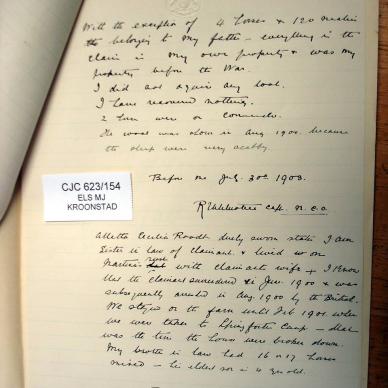 With the exception of 4 horses & 120
belonging to my father - everything in the
claim is my own property & was my
property before the War.
I did not again any loot.
I have recovered nothing.
2 were on Commando.
The wool was in Aug 1900. because
the sheep were very scabby.
Before me July 30th 1903.
Capt.
CJC 623/154
ELS MJ
KROONSTAD
Aletta Cecilia duly sworn states I am
Sister in law of claimant & lived on
with claimants wife. I know
that the claimant surrendered in June 1900 & was
subsequently arrested in Aug 1900 by the British.
We stayed on the farm until Feb 1901 when
we were taken to Springfontein Camp -
was the time the house were broken down.
My brother in law had 16 or 17 horses
mixed - he elder son in